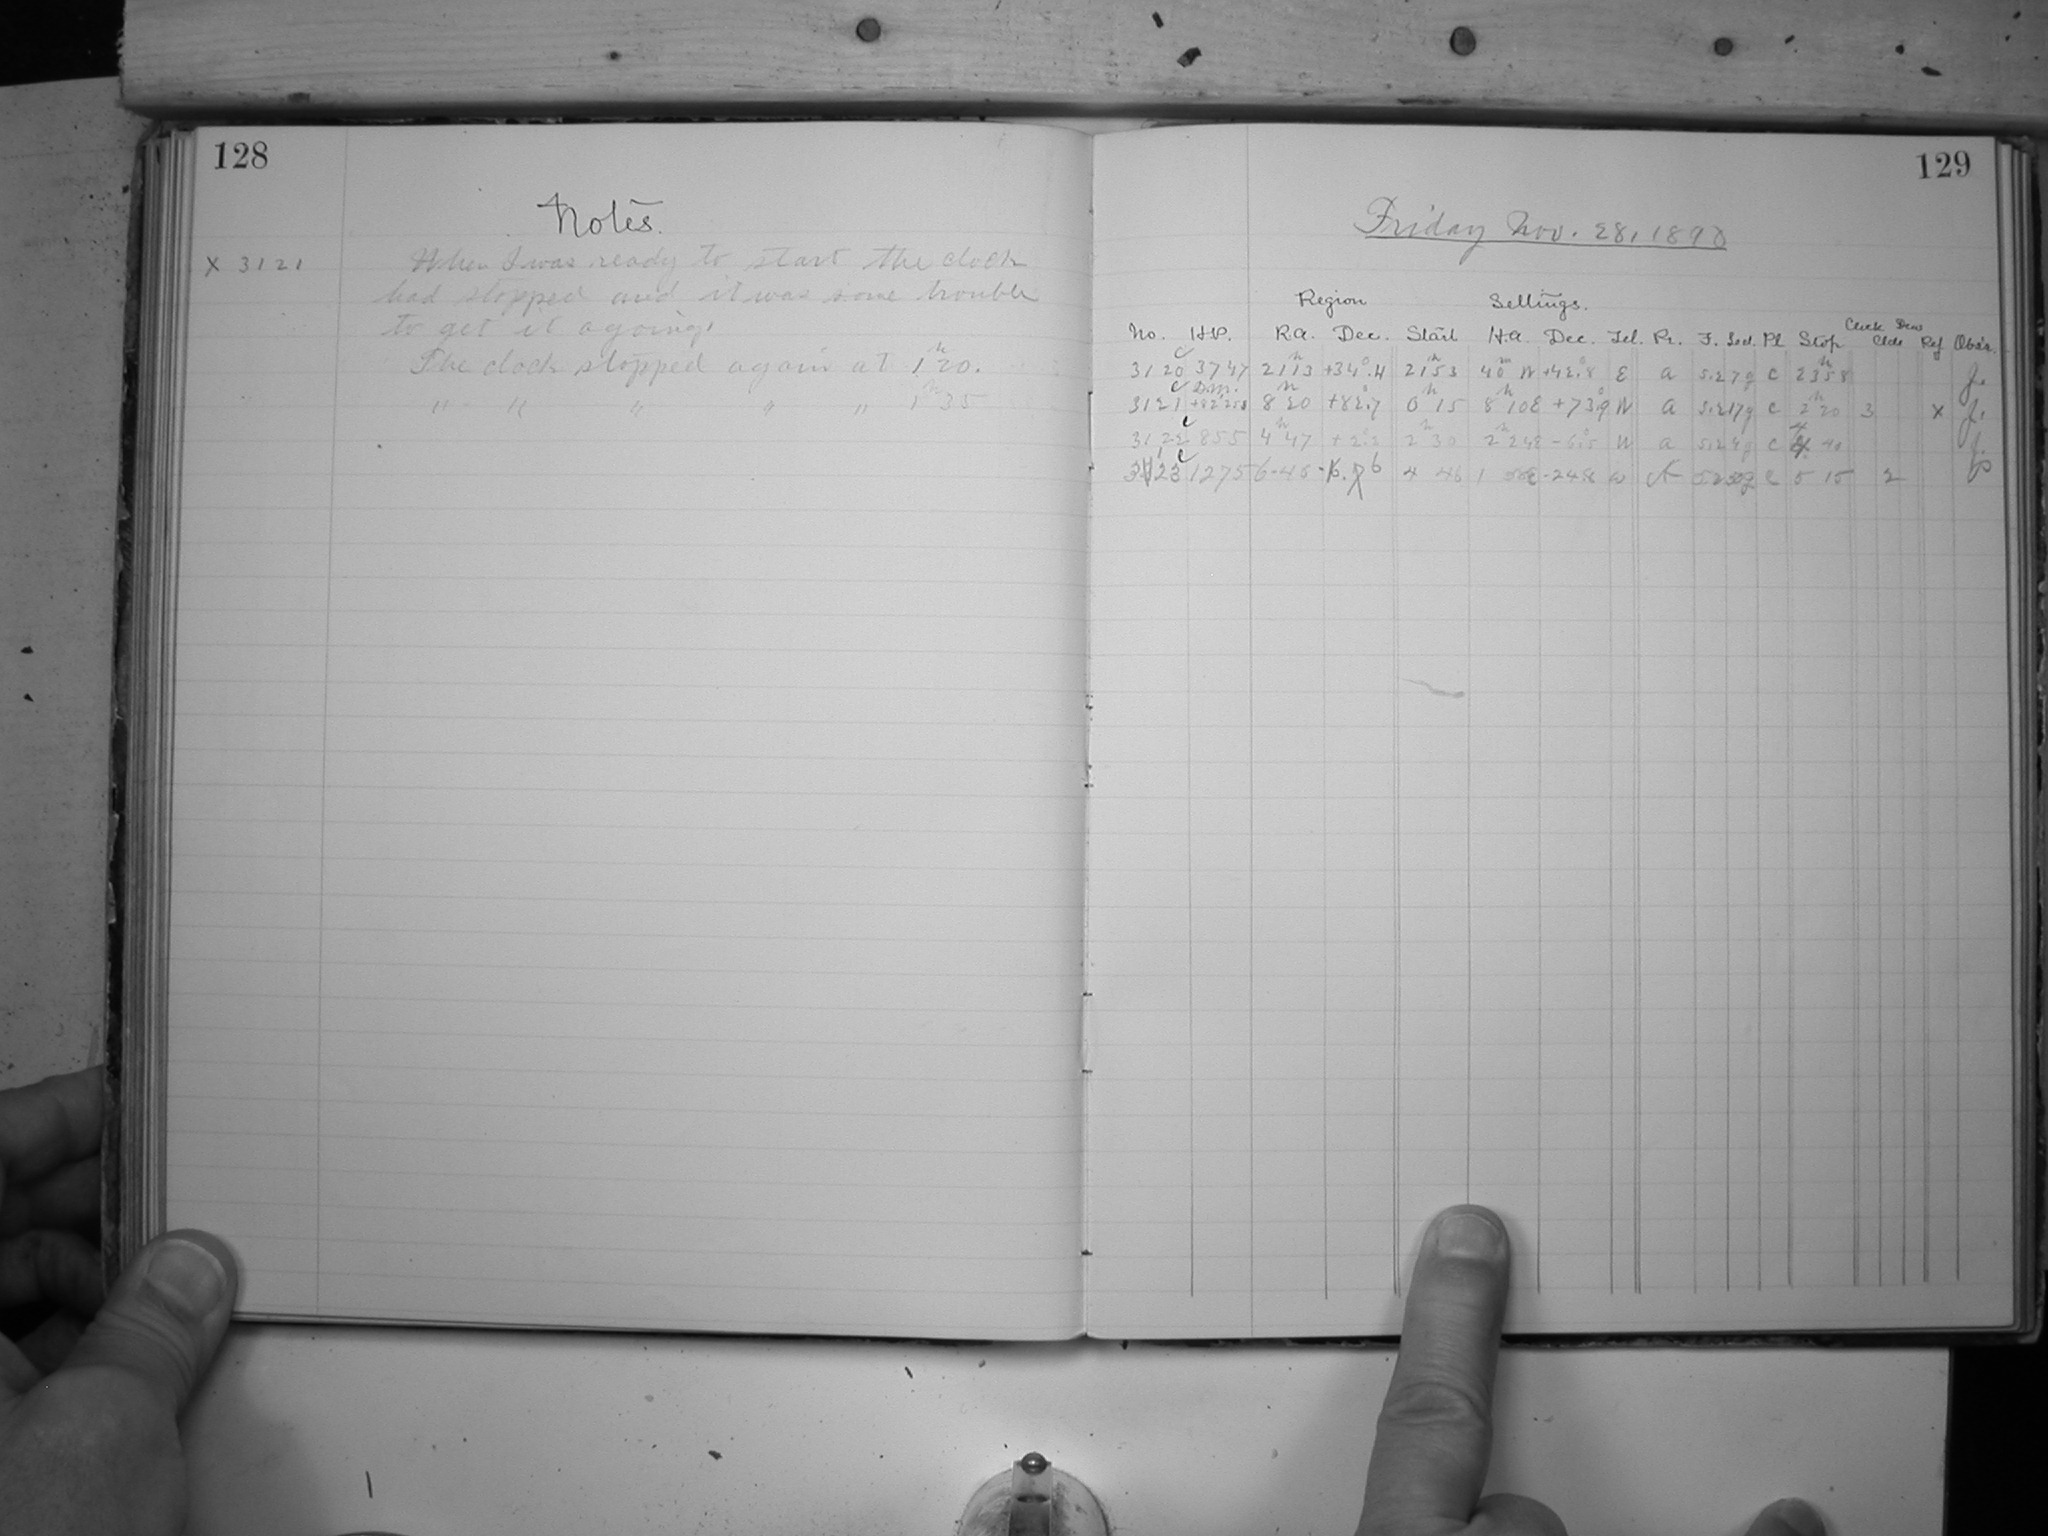 128
Notes.
x 3121 When I was ready to start the clock
had stopped and it was some trouble
to get it agoing.
The clock stopped again at 1h 20.
" " " " " 1h 35
129
Friday Nov. 28, 1890
Region Settings.
No. H.P. R.A. Dec. Start H.A. Dec. Tel. Pr. F. Sed. Pl Stop Click Dew Clds Ref Obs'r.
3120 c 3747 21h 13 +34°.4 21h 53 40m W +42°.8 E a 5.2 7 g c 23h 58 J.
3121 c D.M. +82°253 8h 20 +82°.7 0h 15 8h 10 E +73°9 W a 5.2 17 g c 2h 20 3 x J.
3122 c 855 4h 47 +2°.2 2h 30 2h 24 E -6°.5 W a c 4 40 J.
3123 c 1275 6 - 48 4 48 1 -24.8 w A c 5 15 2